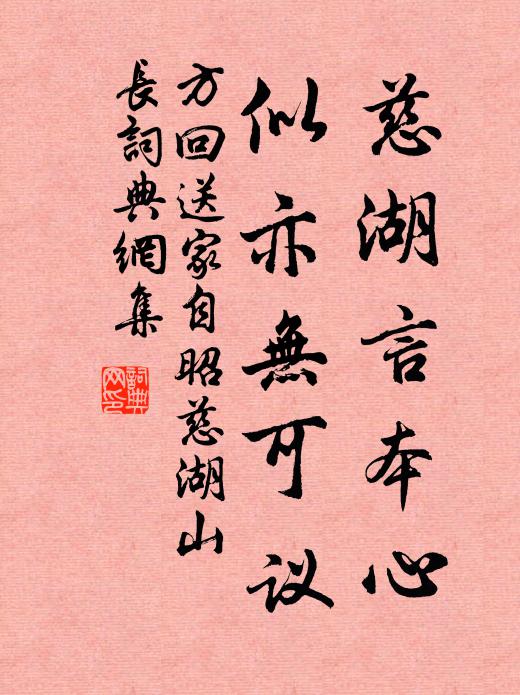 慈湖言本心
似亦無可议
方回送家自昭慈湖山
長詞典網集
詞典网印